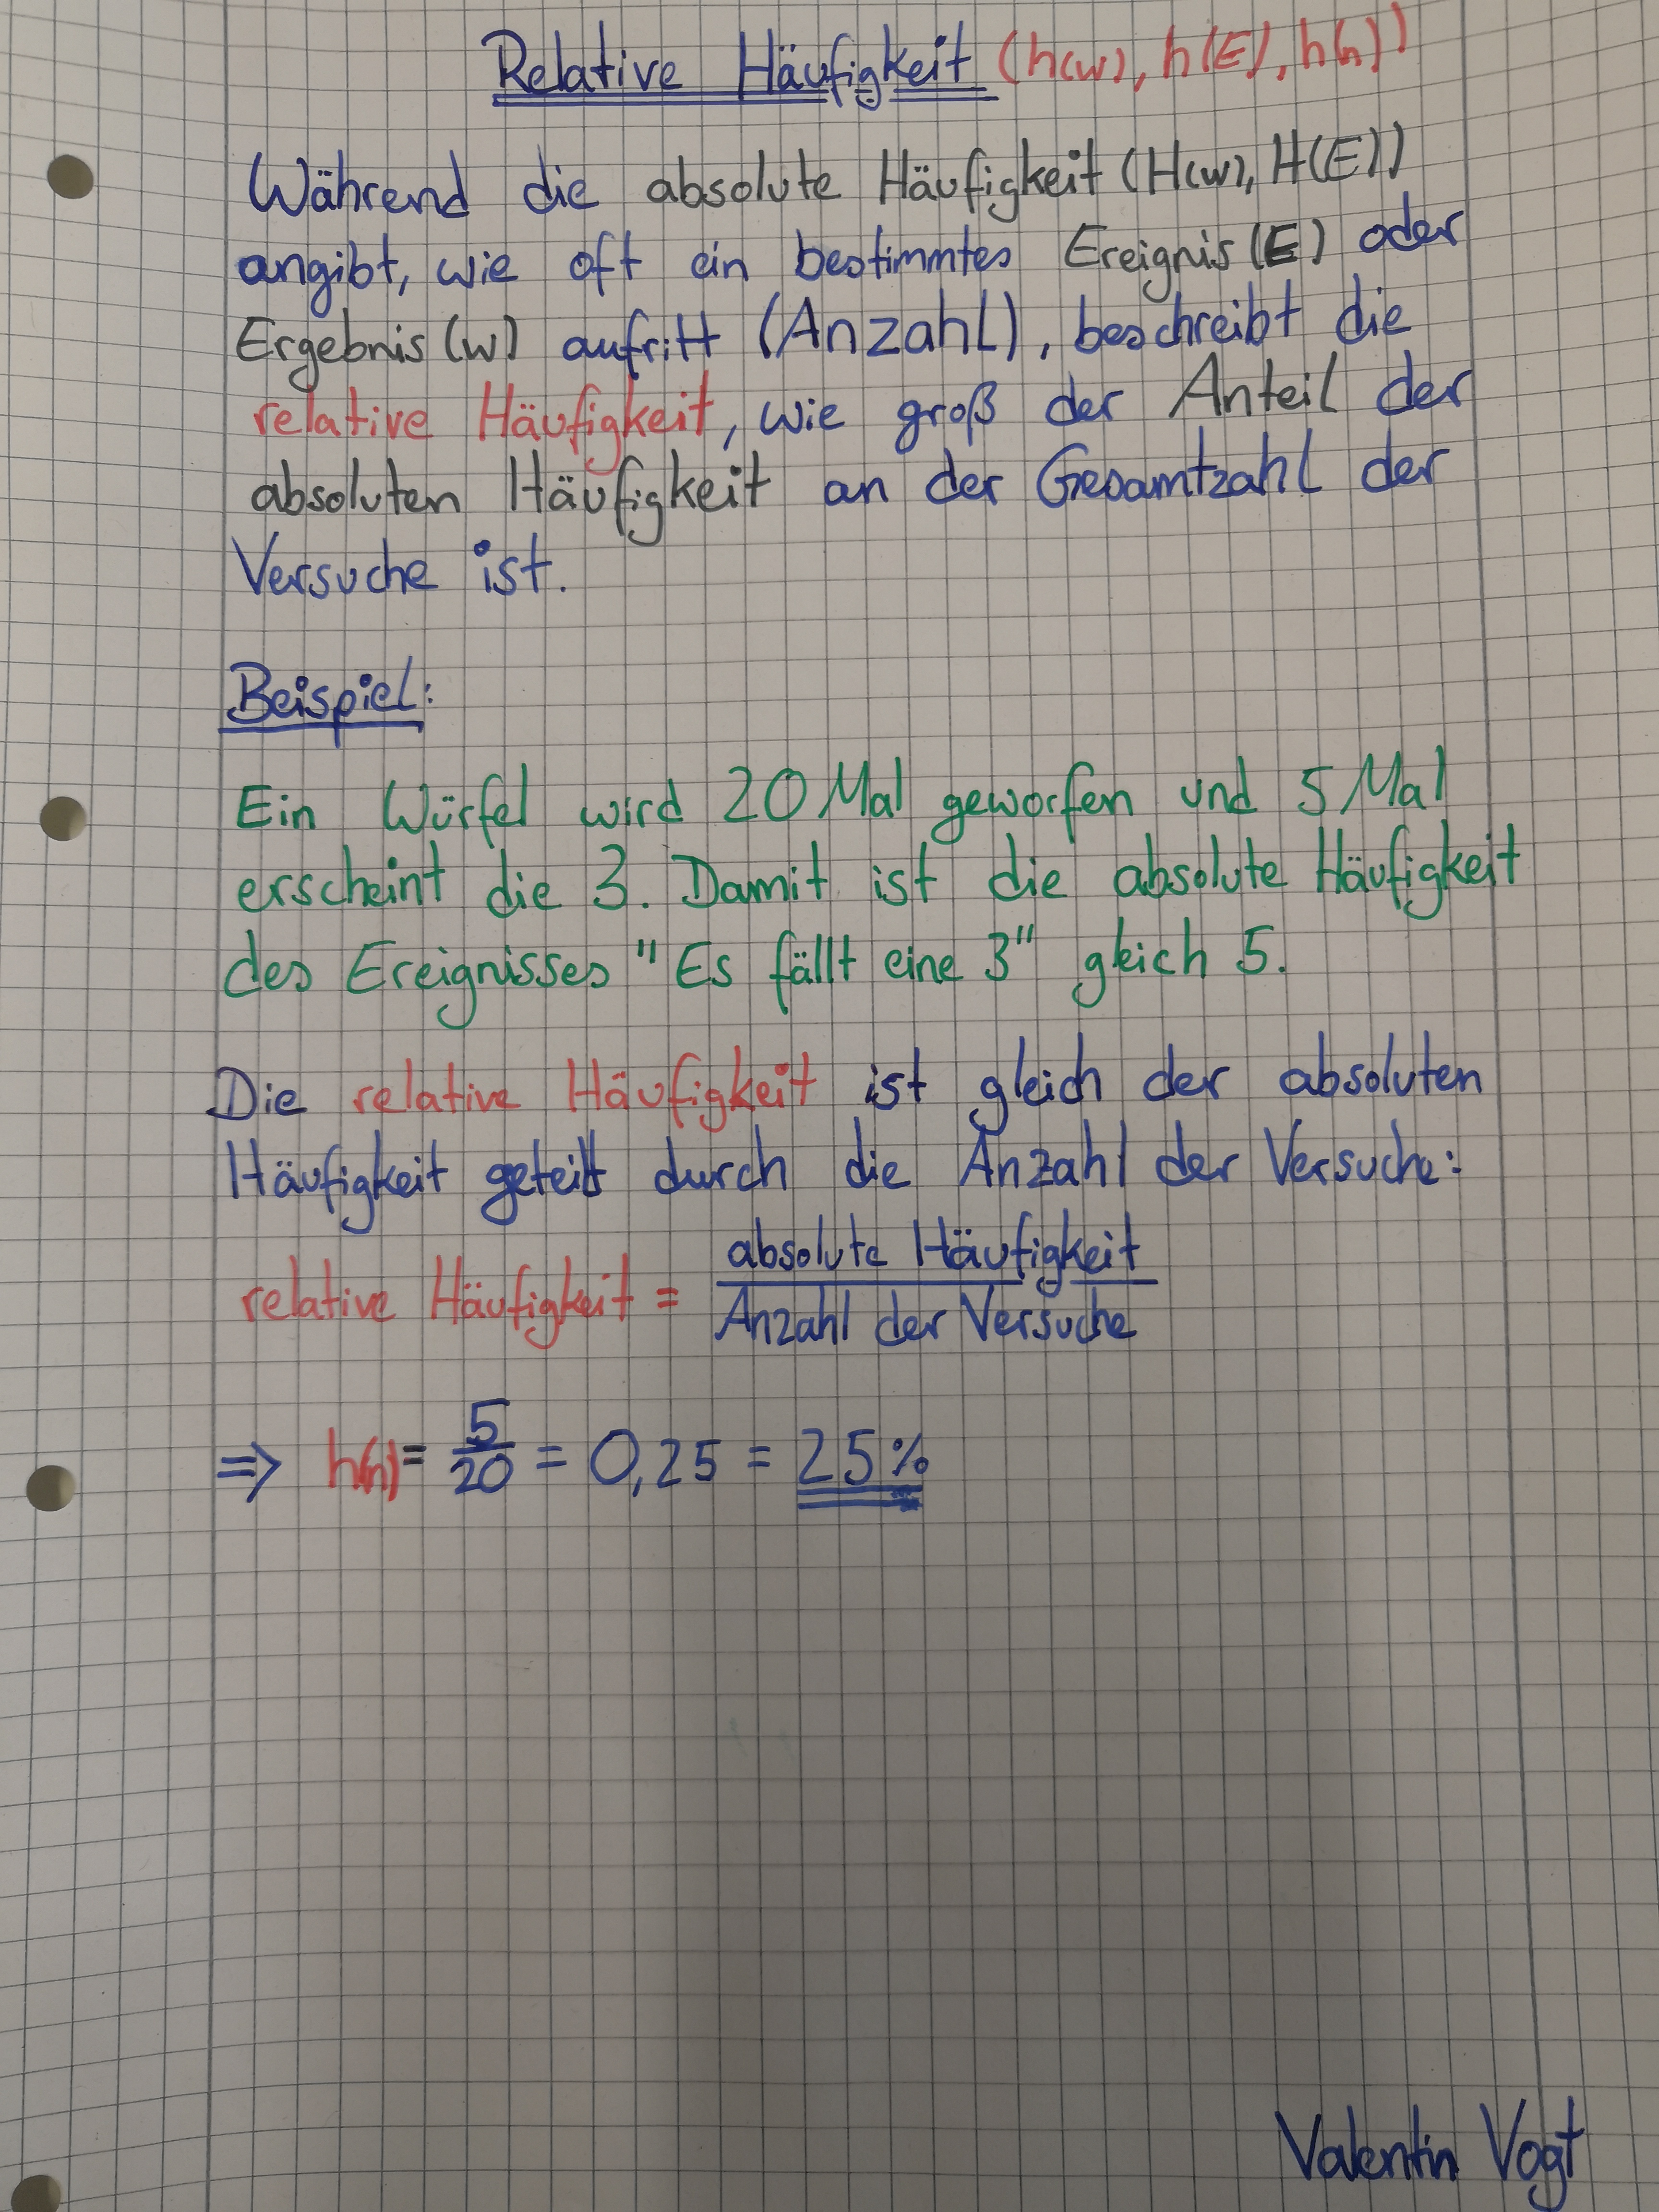 Relative Häufigkeit (h(w), h(E), h(n))
Während die absolute Häufigkeit (H(w), H(E))
angibt, wie oft ein bestimmtes Ereignis (E) oder
Ergebnis (w) aufritt (Anzahl), beschreibt die
relative Häufigkeit, wie groß der Anteil der
absoluten Häufigkeit an der Gesamtzahl der
Versuche ist.
Beispiel:
Ein Würfel wird 20 Mal geworfen und 5 Mal
erscheint die 3. Damit ist die absolute Häufigkeit
des Ereignisses "Es fällt eine 3" gleich 5.
Die relative Häufigkeit ist gleich der absoluten
Häufigkeit geteilt durch die Anzahl der Versuche:
relative Häufigkeit = absolute Häufigkeit
Anzahl der Versuche
⇒ h(n) = 5/20 = 0,25 = 25%
Valentin Vogt